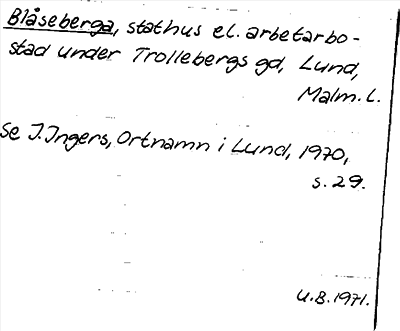 Blåseberga, stathus el. arbetarbo-
stad under Trollebergs gd, Lund,
Malm. L.
Se J. Ingers, Ortnamn i Lund, 1970,
s. 29.
U.B. 1971.